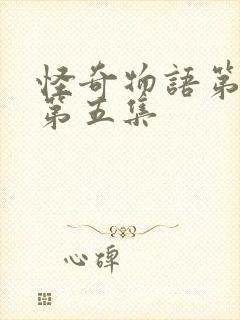 怪奇物語第
第五集
心碑